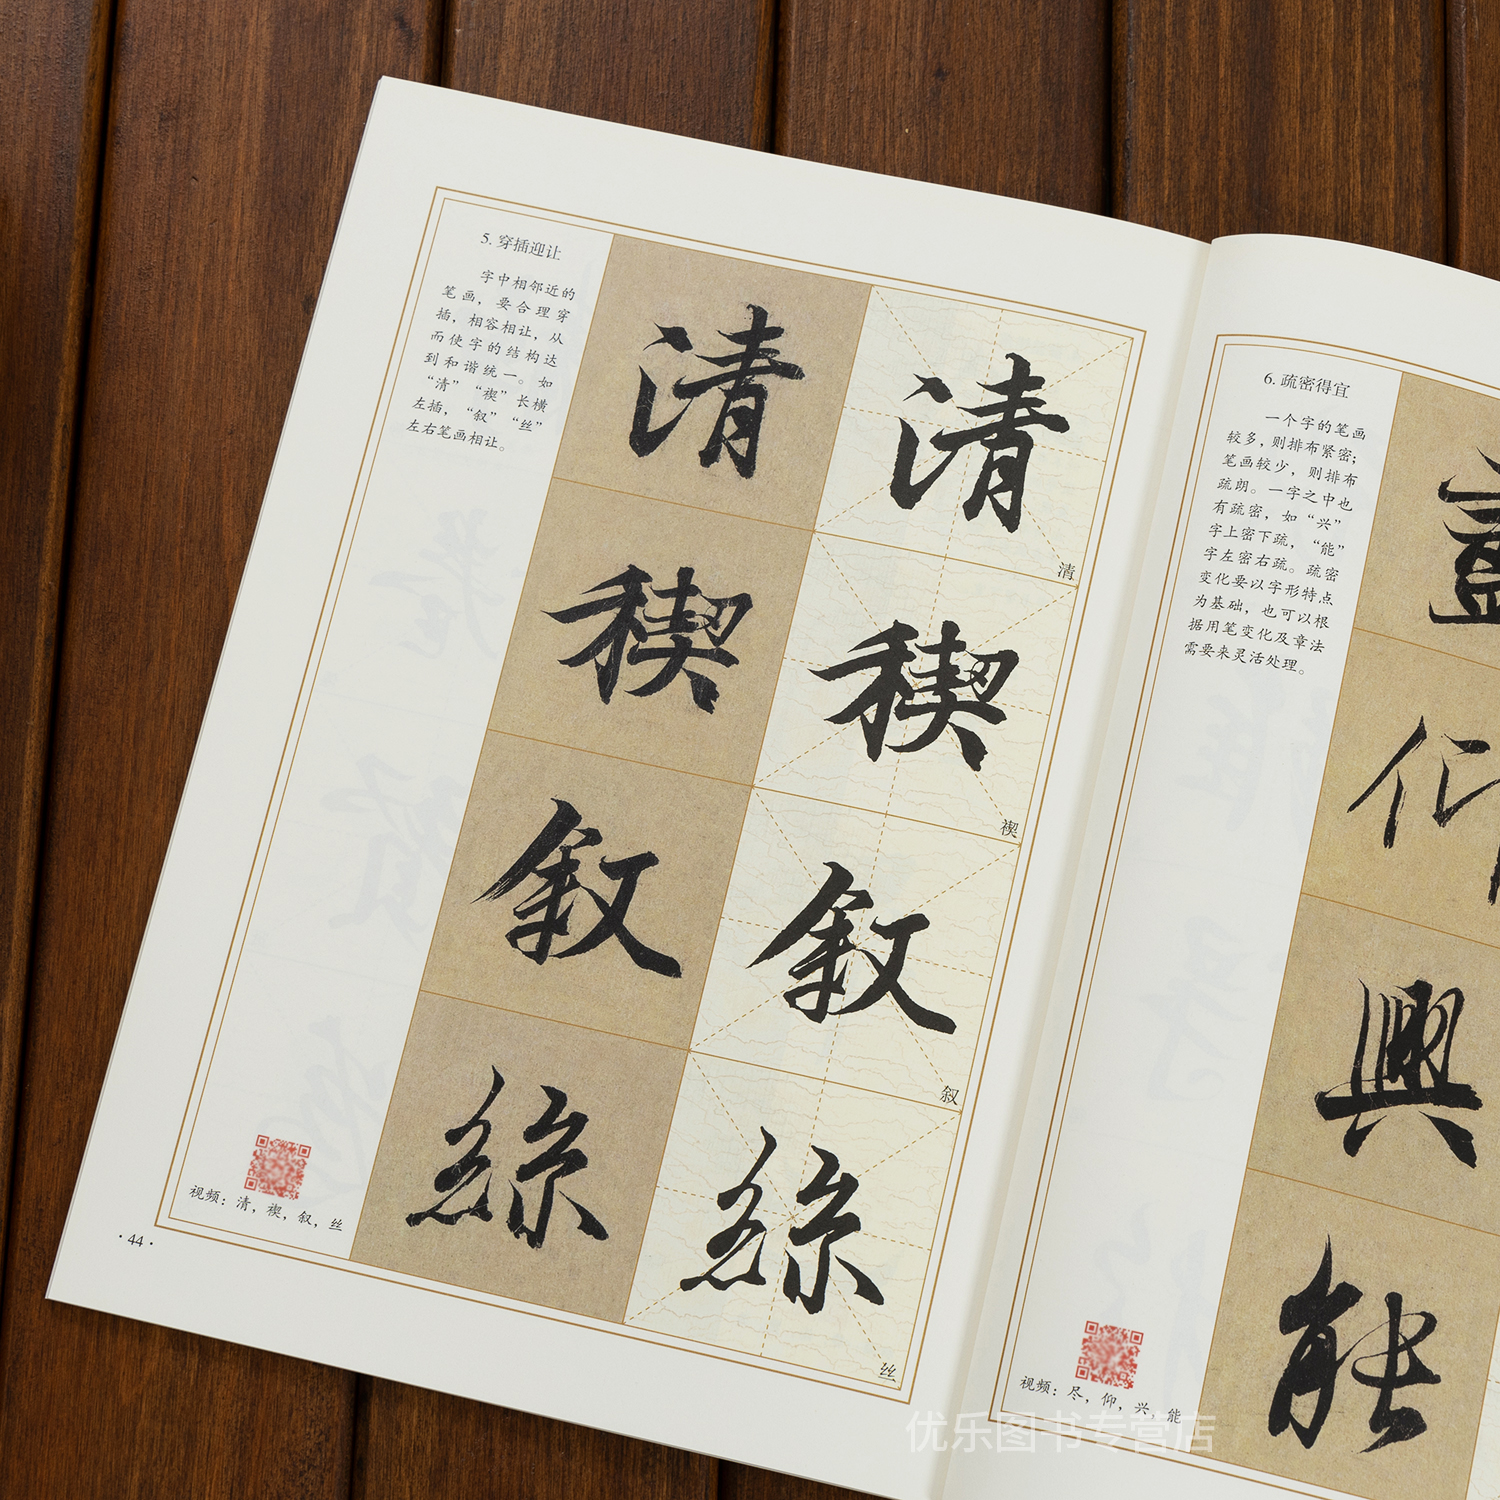 5. 穿插迎让
字中相邻近的
笔画，要合理穿
插，相容相让，从
而使字的结构达
到和谐统一。如
“清”“禊”长横
左插，“叙”“丝”
左右笔画相让。
清
清
清
禊
禊
禊
叙
叙
叙
絲
絲
丝
视频：清，禊，叙，丝
·44·
6. 疏密得宜
一个字的笔画
较多，则排布紧密；
笔画较少，则排布
疏朗。一字之中也
有疏密，如“兴”
字上密下疏，“能”
字左密右疏。疏密
变化要以字形特点
为基础，也可以根
据用笔变化及章法
需要来灵活处理。
仰
興
能
视频：尽，仰，兴，能
优乐图书专营店